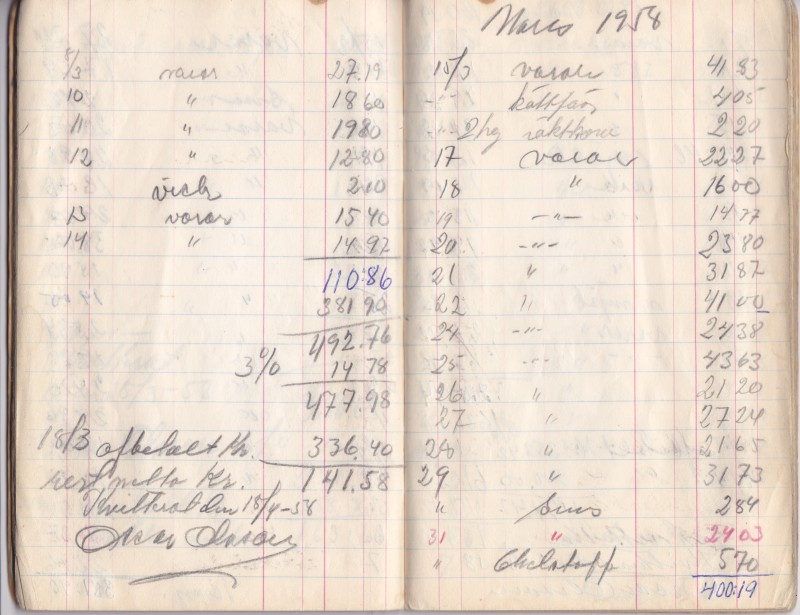 8/3 varor 27.19
10 " 18 60
11 " 19 80
12 " 12-80
2.10
13 varor 15 40
14 " 14.97
110-86
381 90
492.76
3% 14 78
477.98
18/3 afbetalt Kr. 336.40
rest netto Kr. 141.58
Kvitteras den 18/4-58
Oscar
Mars 1958
15/3 varor 41 83
-"- köttfärs 4 05
-"- 2 hg 2 20
17 varor 22 27
18 " 16 00
19 -"- 14 77
20 -"- 23 80
21 " 31 87
22 " 41 00
24 -"- 24 38
25 -"- 43 63
26 " 21 20
27 " 27 24
28 " 21 65
29 " 31 73
" 2 84
31 " 24 03
" 5 70
400.19